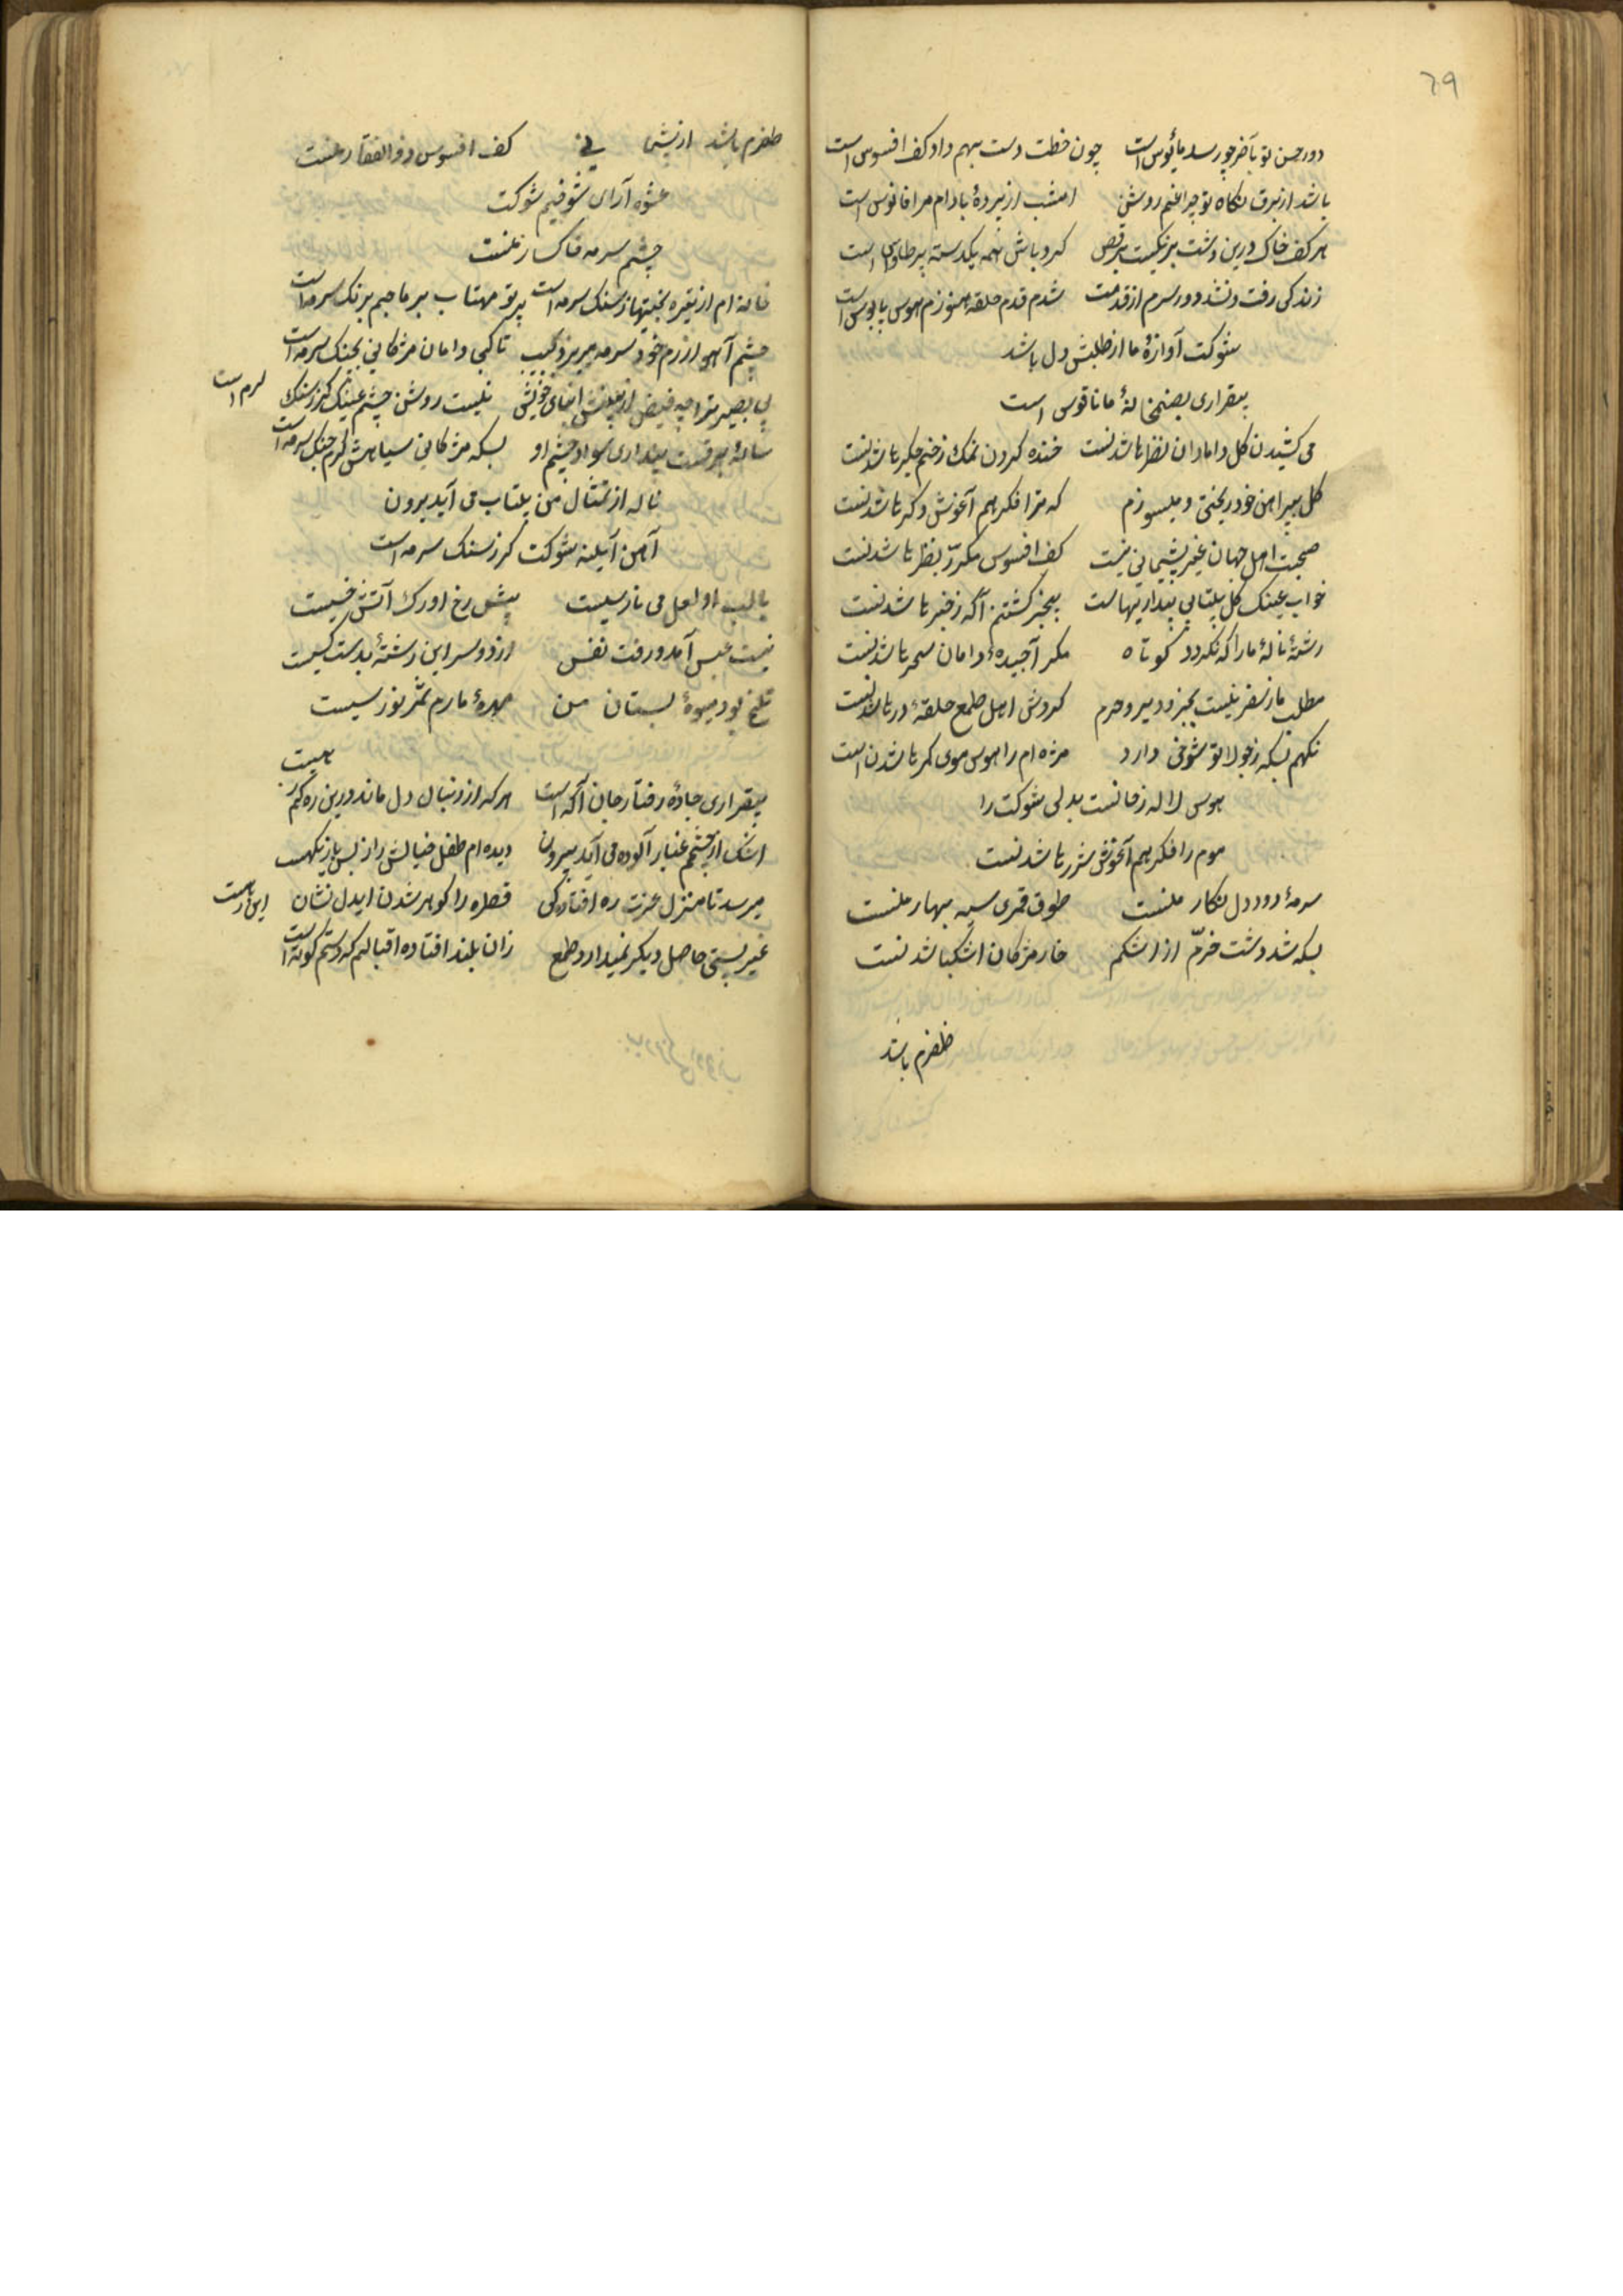 ٦٩
دور حسن تو بآخر چو رسد مأیوس است چون خطت دست بهم داد کف افسوس است
باشد از برق نگاه تو چراغم روشن امشب از پردهٔ بادام مرا فانوس است
هر کف خاک درین دشت برنگیست برقص کردبادش همه یکدسته پر طاوس است
زندکی رفت و نشد دور سرم از قدمت شدم قدم حلقه هنوزم هوس پابوس است
شوکت آوازهٔ ما از طپش دل باشد
بیقراری بصنمخانهٔ ما ناقوس است
می کشیدن کل دامان نظرها شدنست خنده کردن نمک زخم جکرها شدنست
کل پیراهن خود ریختی و میسوزم که ترا فکر هم آغوش دکرها شدنست
صحبت اهل جهان غیر پشیمانی نیست کف افسوس مکرر بنظرها شدنست
خواب عینک کل بیتابی بیداریهاست بیخبر کشتنم آکه ز خبرها شدنست
رشتهٔ نالهٔ ما را که نکردد کوتاه مکر آجیدهٔ دامان سحرها شدنست
مطلب ما ز سفر نیست بجز دیر و حرم کردش اهل طمع حلقهٔ درها شدنست
نکهم بسکه ز جولا تو شوخی دارد مژه ام را هوس موی کمرها شدن است
هوس لاله رخانست بدل شوکت را
موم را فکر هم آغوش شررها شدنست
سرمهٔ دود دل نکار منست طوق قمری سیه بهار منست
بسکه شد دشت خرّم از اشکم خار مژکان اشکبا شدنست
ظفرم باشد
ظفرم باشد از پشیمانی کف افسوس ذوالفقار منست
عشوه آرای شوخیم شوکت
چشم سرمه خاکسار منست
خانه ام از تیره بختیها ز سنک سرمه است پرتو مهتاب بر ما جیم برنک سرمه است
چشم آهو از رم خود سرمه میریزد بجیب تا کجا دامان مژکانی بچنک سرمه است
بی بصیرت را چه فیض از بینش ابنای خویش نیست روشن چشم عینک کر ز سنک سرمه است
شانهٔ سر نیست بیداری سواد چشم او بسکه مژکان سیاهش کرم جنک سرمه است
ناله از تمثال من بیتاب می آید برون
آهن آیینه شوکت کر ز سنک سرمه است
با لب او لعل می نارسیست پیش رخ او رک آتش خسیست
نیست عبس آمد و رفت نفس از دو سر این رشته بدست کسیست
تلخ بود میوهٔ بستان من مهرهٔ مارم ثمر نورسیست
بیقراری جادهٔ رفتار جان آکه است هر که از دنبال دل ماند درین ره کمرهست
اشک از چشمم غبار آلوده می آید برون دیده ام طفل خیالش را ز بس بازیکهست
میرسد تا منزل عزت ره افتادکی قطره را کوهر شدن ایدل نشان این رهست
غیر پستی حاصل دیکر نمیدارد طمع زان بلند افتاده اقبالم که دستم کوته است